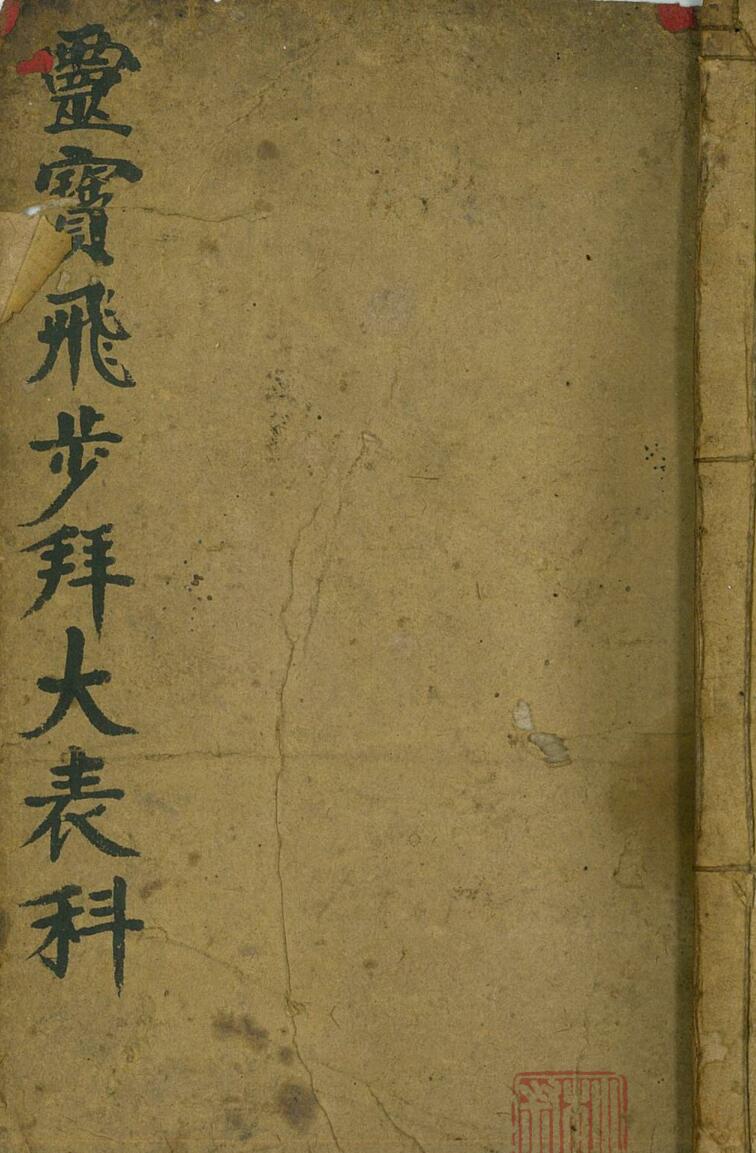 靈寳飛步拜大表科